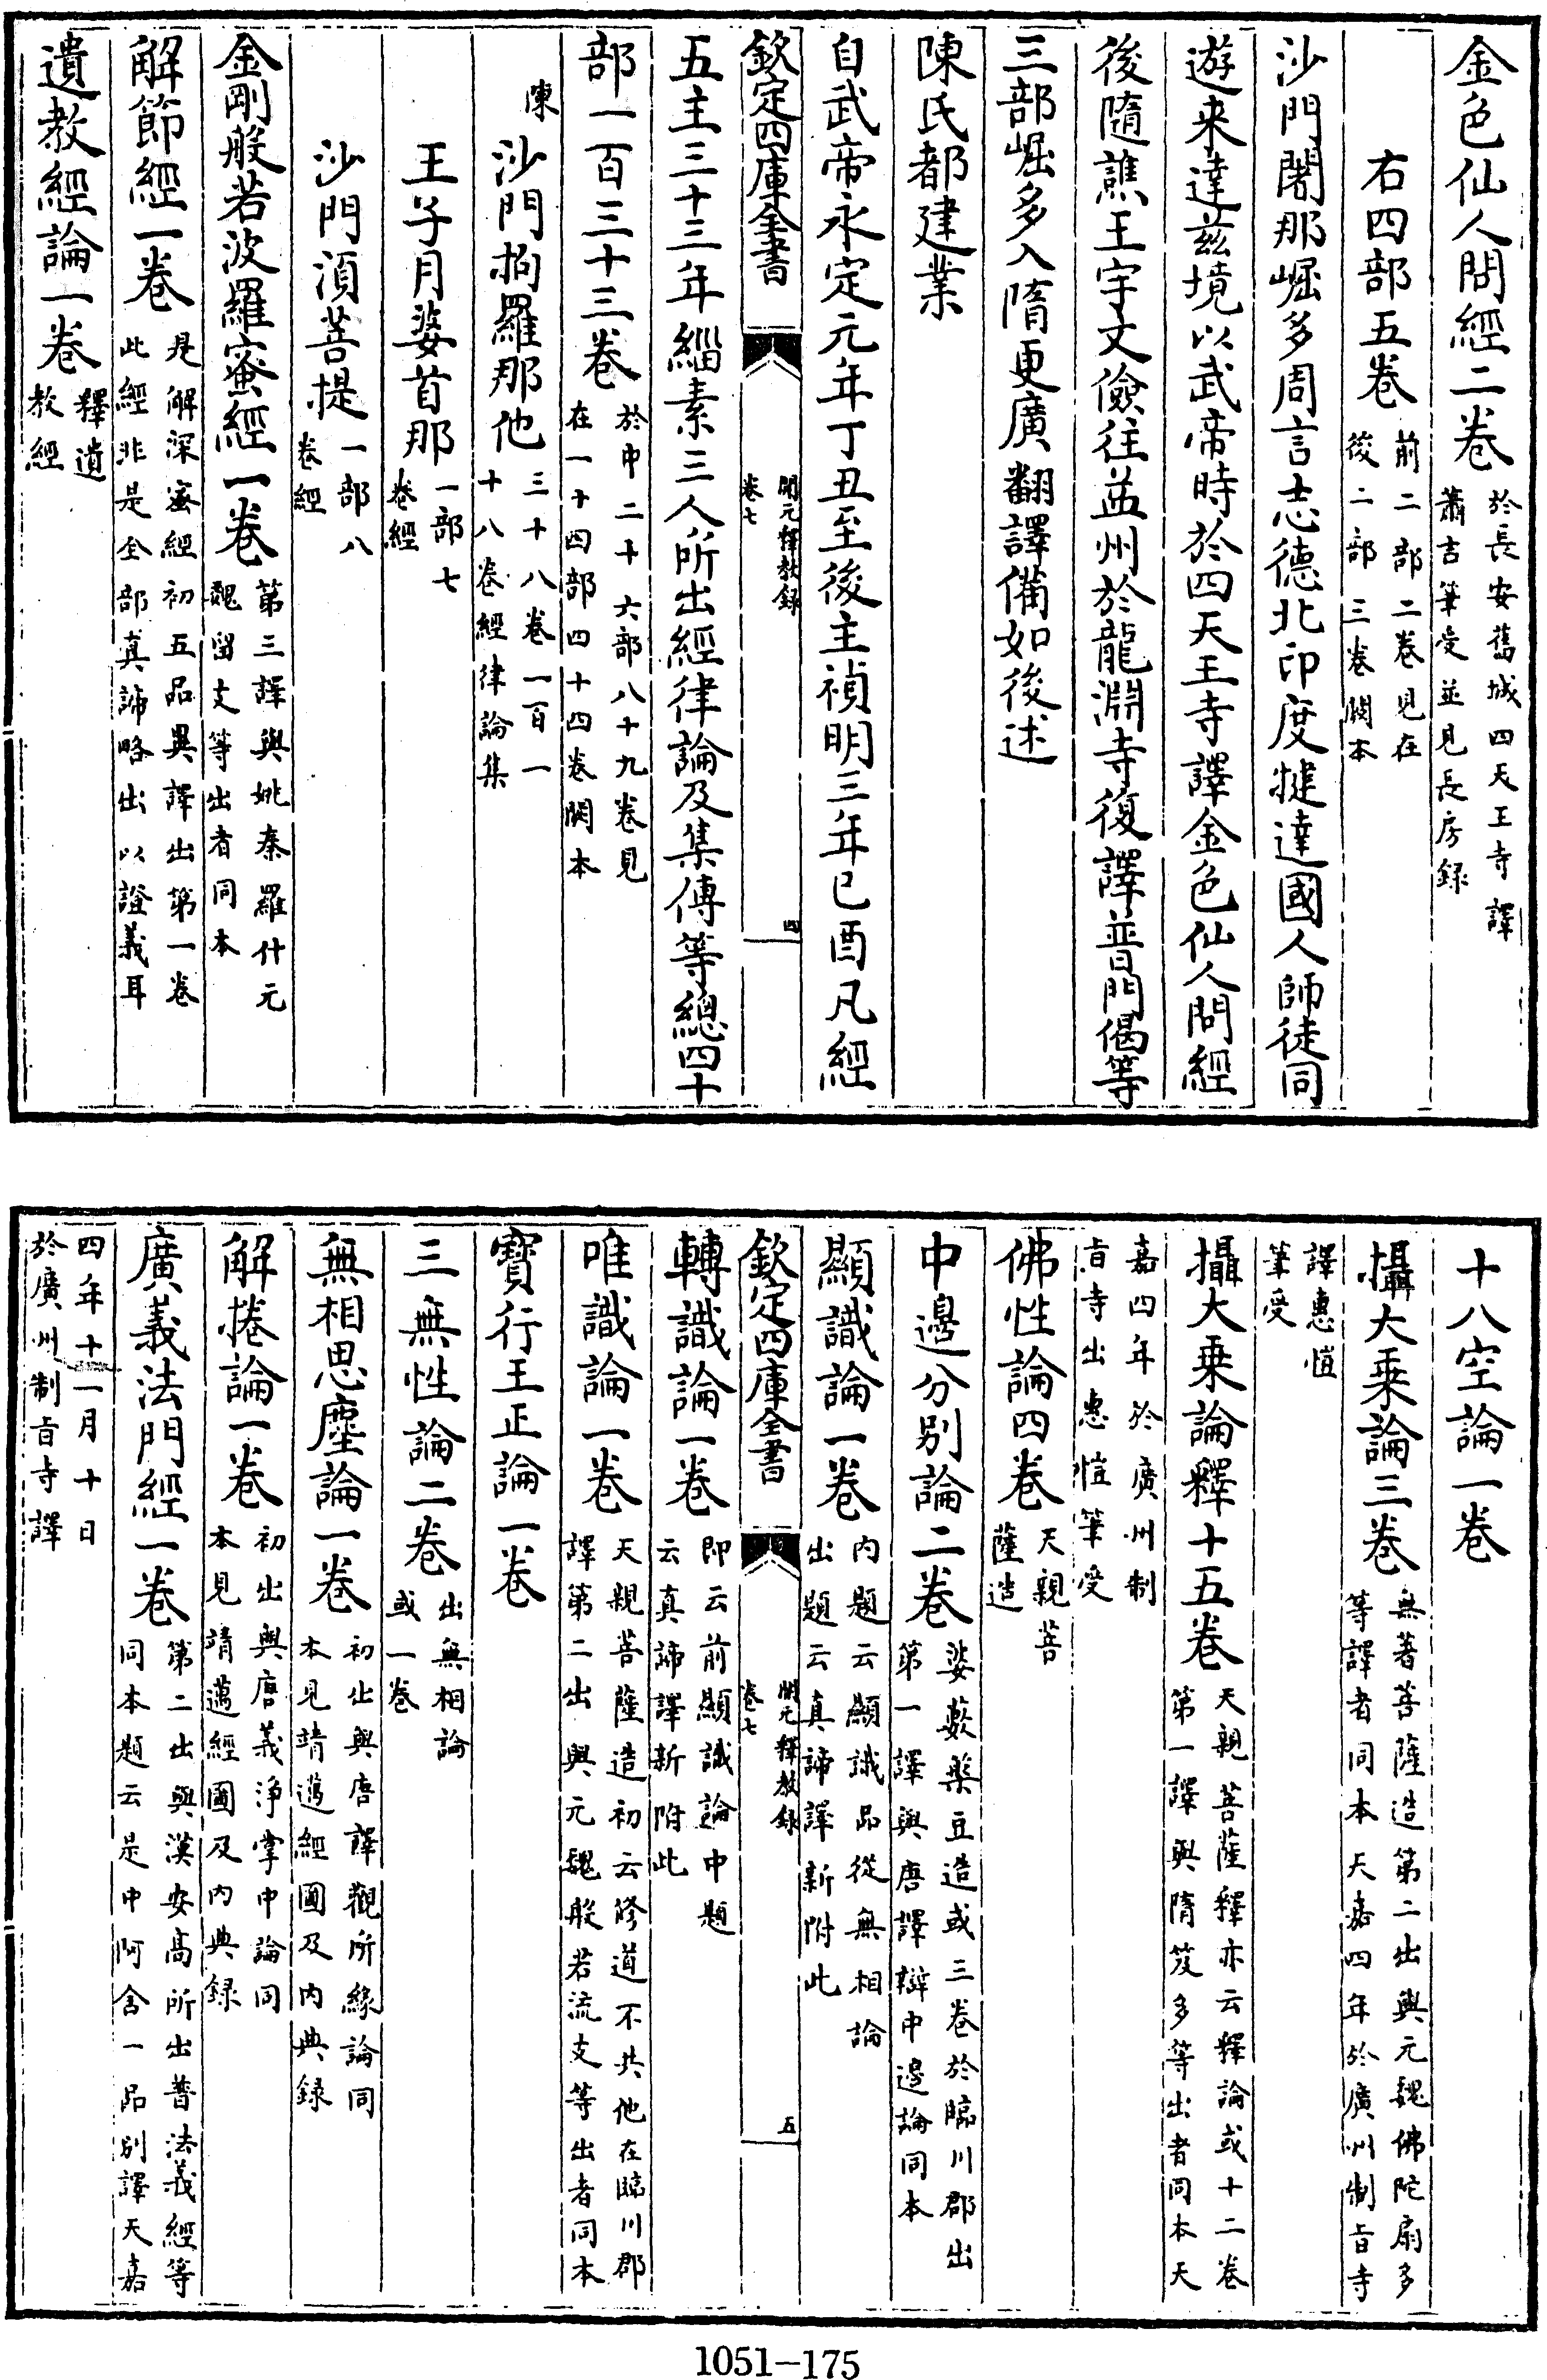 金色仙人問經二卷於長安舊城四天王寺譯蕭吉筆受並見長房録
右四部五卷前二部二卷見在後二部三卷闕本
沙門闍那崛多周言志德北印度揵達國人師徒同
遊来達兹境以武帝時於四天王寺譯金色仙人問經
後隨譙王宇文儉往益州於龍淵寺復譯普門偈等
三部崛多入隋更廣翻譯備如後述
陳氏都建業
自武帝永定元年丁丑至後主禎明三年己酉凡經
欽定四庫全書
開元釋教録
卷七
四
五主三十三年緇素三人所出經律論及集傳等總四十
部一百三十三卷於中二十六部八十九卷見在一十四部四十四卷闕本
陳沙門拘羅那他三十八卷一百一十八卷經律論集
王子月婆首那一部七卷經
沙門須菩提一部八卷經
金剛般若波羅蜜經一卷第三譯與姚秦羅什元魏留支等出者同本
解節經一卷是解深蜜經初五品異譯出第一卷此經非是全部真諦略出以證義耳
遺教經論一卷釋遺教經
十八空論一卷
攝大乗論三卷無著菩薩造第二出與元魏佛陀扇多等譯者同本天嘉四年於廣州制旨寺
譯惠愷筆受
攝大乗論釋十五卷天親菩薩釋亦云釋論或十二卷第一譯與隋笈多等出者同本天
嘉四年於廣州制旨寺出惠愷筆受
佛性論四卷天親菩薩造
中邊分別論二卷婆藪槃豆造或三卷於臨川郡出第一譯與唐譯辯中邊論同本
顯識論一卷内題云顯識品從無相論出題云真諦譯新附此
欽定四庫全書
開元釋教録
卷七
五
轉識論一卷即云前顯識論中題云真諦譯新附此
唯識論一卷天親菩薩造初云修道不共他在臨川郡譯第二出與元魏般若流支等出者同本
寶行王正論一卷
三無性論二卷出無相論或一卷
無相思塵論一卷初出與唐譯觀所緣論同本見靖邁經圖及内典録
解捲論一卷初出與唐義淨掌中論同本見靖邁經圖及内典録
廣義法門經一卷第二出與漢安高所出普法義經等同本題云是中阿含一品別譯天嘉
四年十一月十日於廣州制旨寺譯
1051-175